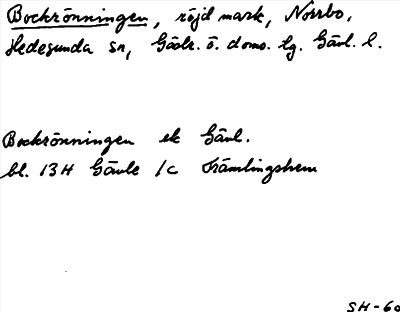 Bockrönningen, röjd mark, Norrbo,
Hedesunda sn, Gästr. ö. doms. lg. Gävl. l.
Bockrönningen ek Gävl.
bl. 13H Gävle 1c Främlingshem
SH-60